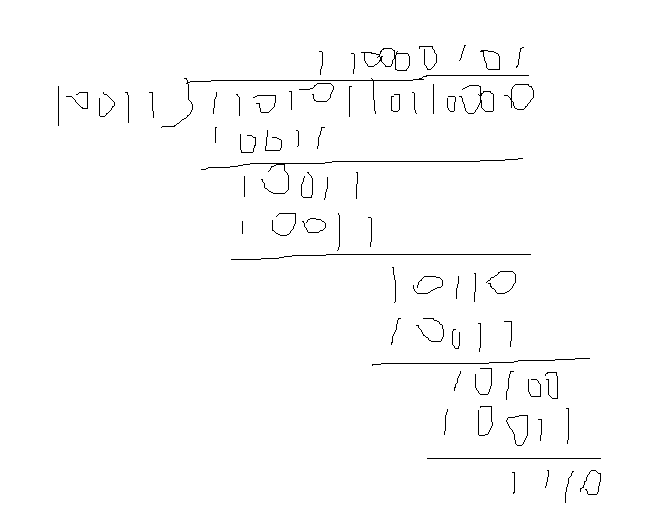 110000101
10011 11010110110000
10011
10011
10011
10110
10011
10100
10011
1110